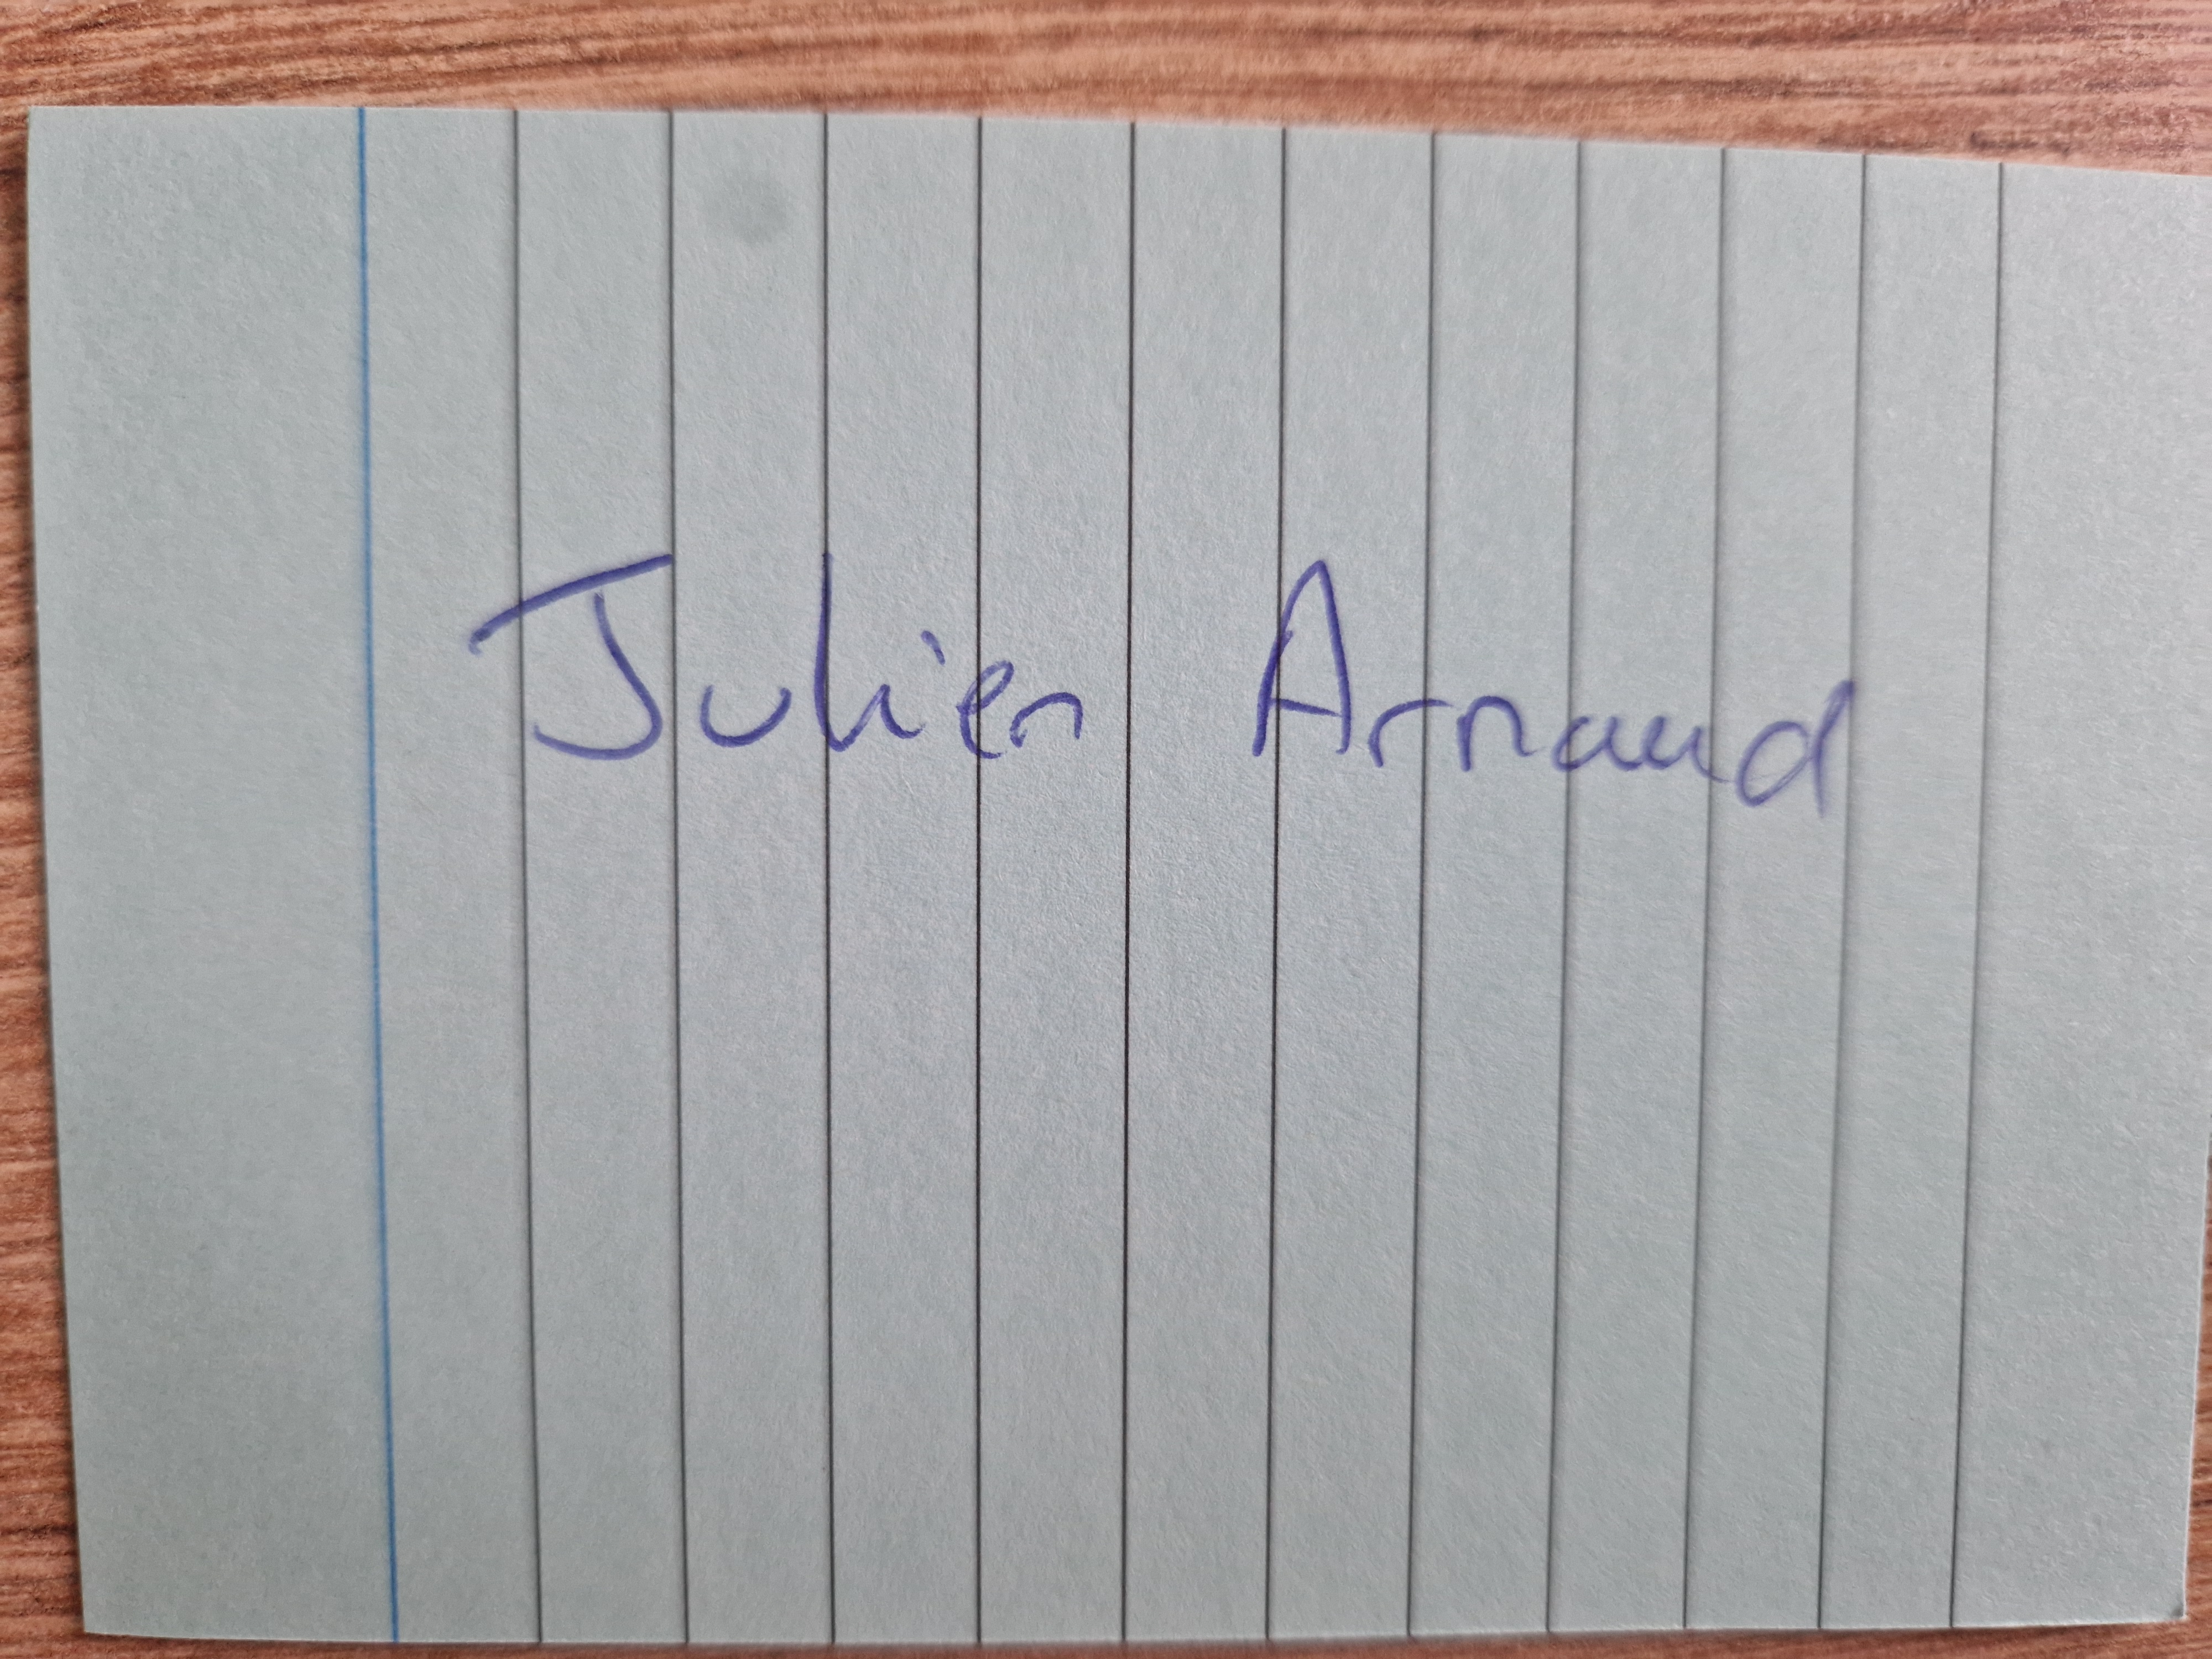 Julien Arnaud